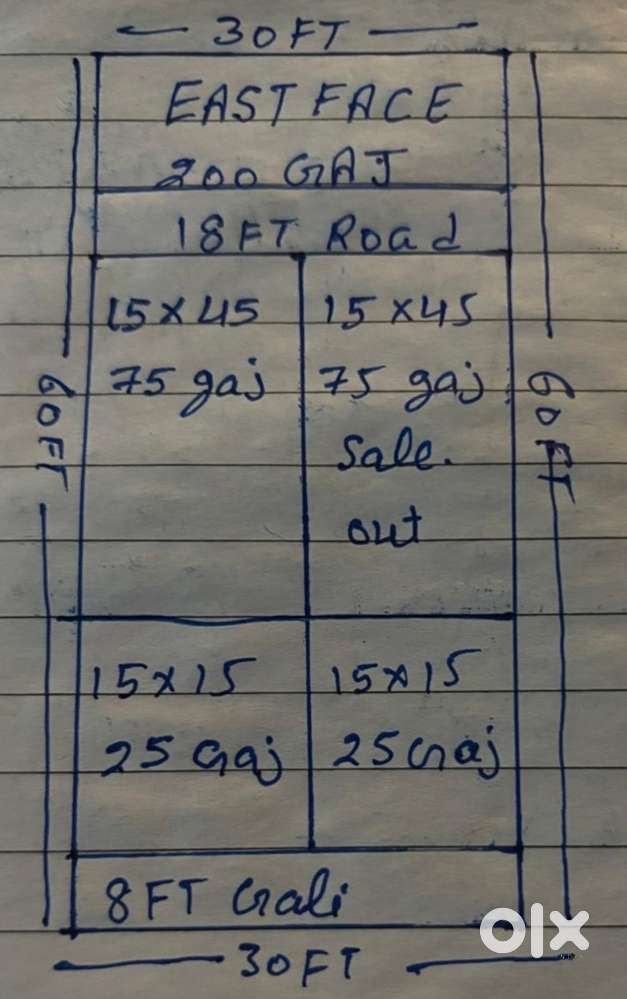 30FT
EAST FACE
200 GAJ
18FT Road
15×45
75 gaj
15×45
75 gaj
Sale.
out
60FT
60FT
15×15
25 Gaj
15×15
25 Gaj
8FT Gali
30FT
olx